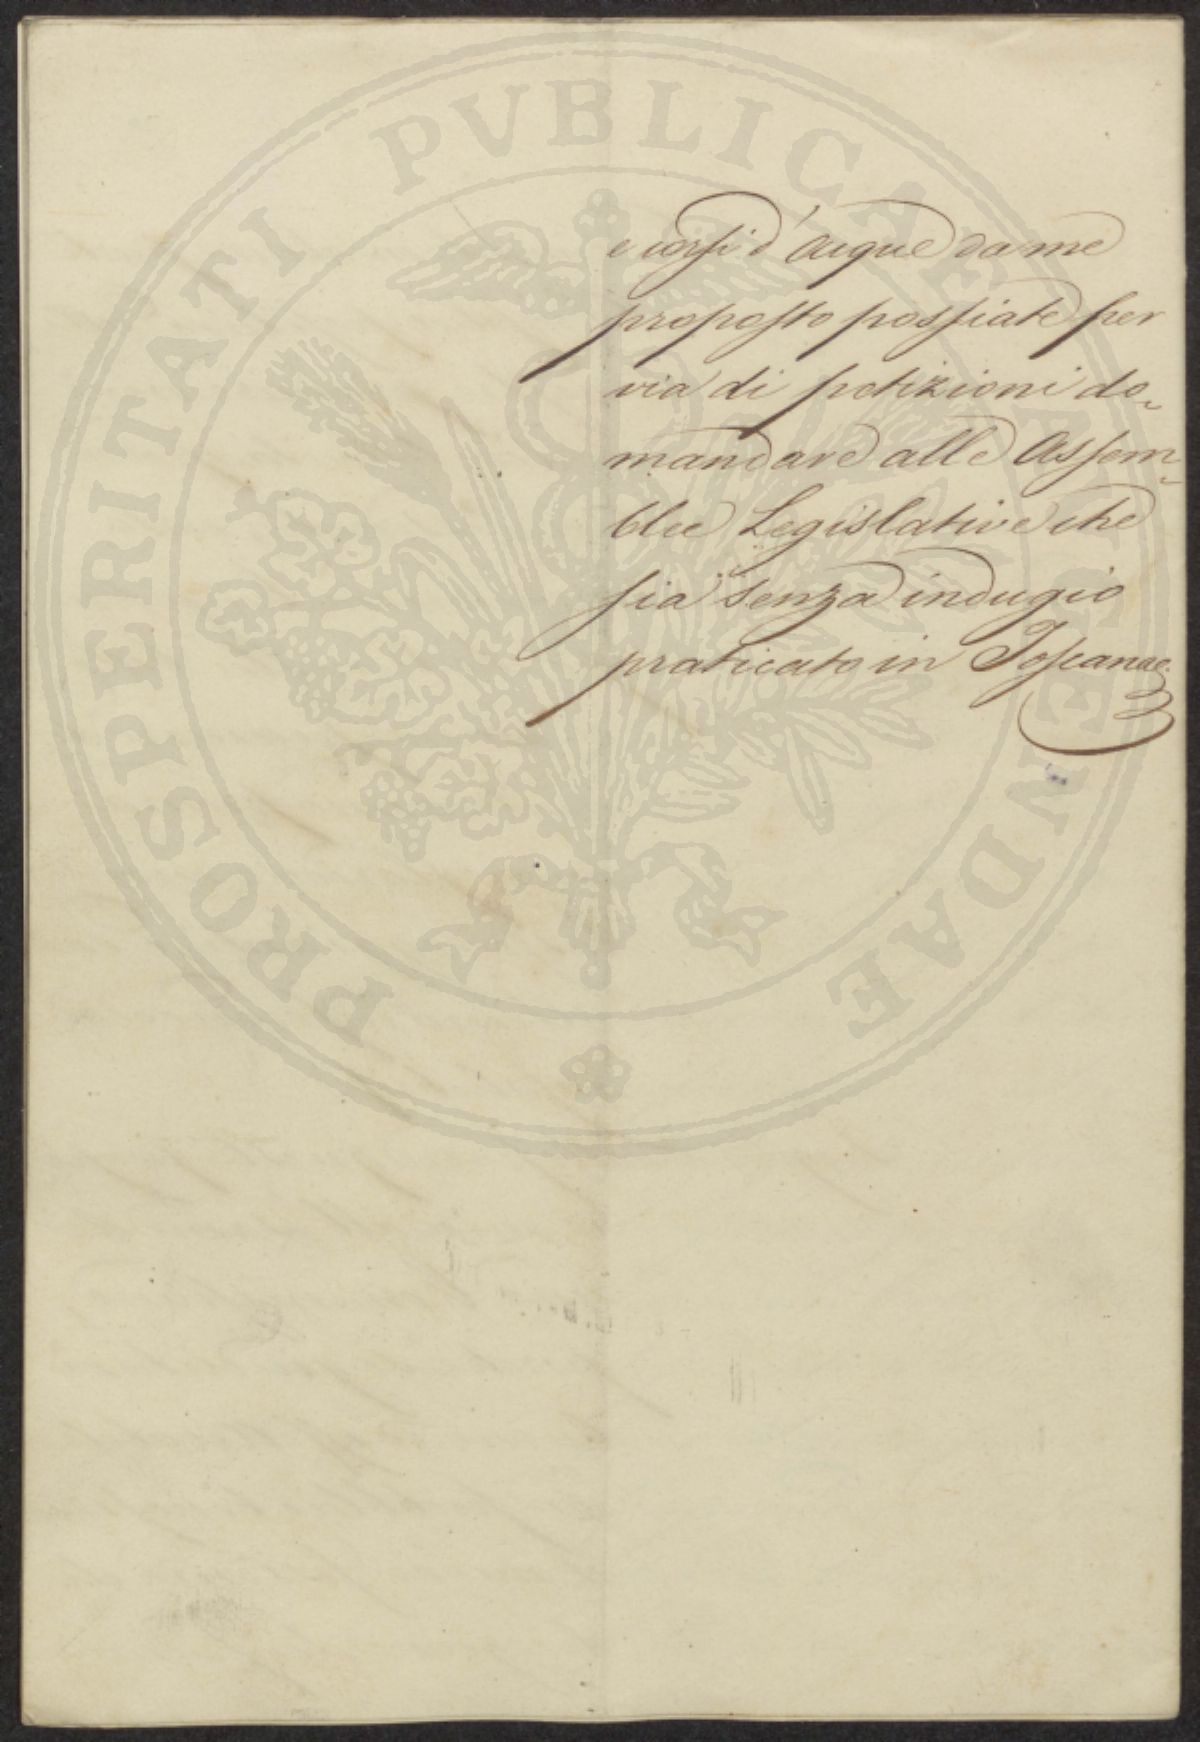 PROSPERITATI PVBLICAE AVGENDAE
e corsi d'Acque da me
proposto possiate per
via di petizioni do-
mandare alle Assem-
blee Legislative che
sia senza indugio
praticato in Toscana.